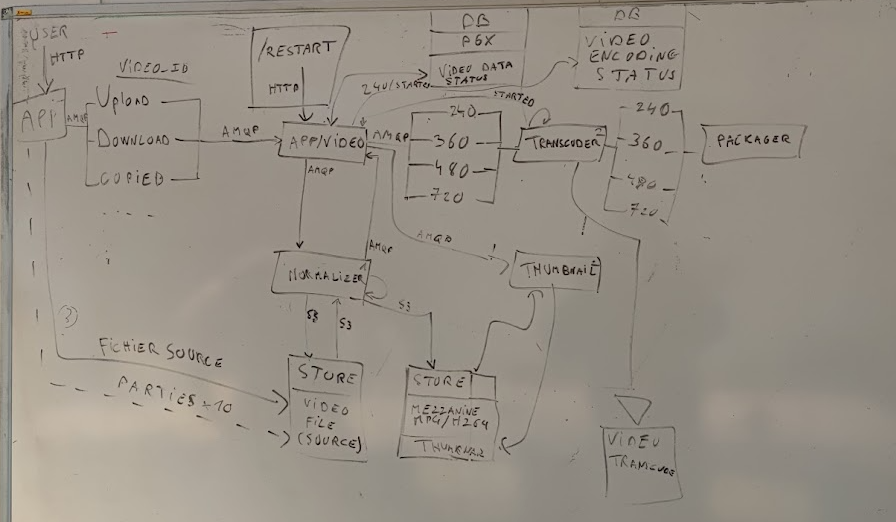 USER
HTTP
API
AMQP
VIDEO_ID
UPLOAD
DOWNLOAD
COPIED
AMQP
/RESTART
HTTP
APP/VIDEO
DB
PGX
VIDEO DATA
STATUS
240/STARTED
DB
VIDEO
ENCODING
STATUS
STARTED
AMQP
240
360
480
720
TRANSCODER
240
360
480
720
PACKAGER
AMQP
AMQP
AMQP
NORMALIZER
THUMBNAIL
S3
S3
S3
?
FICHIER SOURCE
PARTIES
10
STORE
VIDEO
FILE
(SOURCE)
STORE
MEZZANINE
MP4/H264
THUMBNAIL
VIDEO